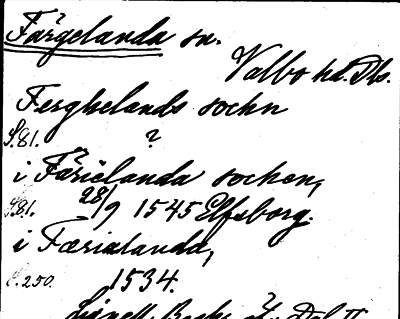 Färgelanda sn.
Valbo hd. Dls.
Ferghelands sochn
S.81. ?
i Färielanda sochen,
S.81. 28/9 1545 Elfsborg.
i Færialanda,
S.250. 1534.
Lignell, Beskr. Dal II